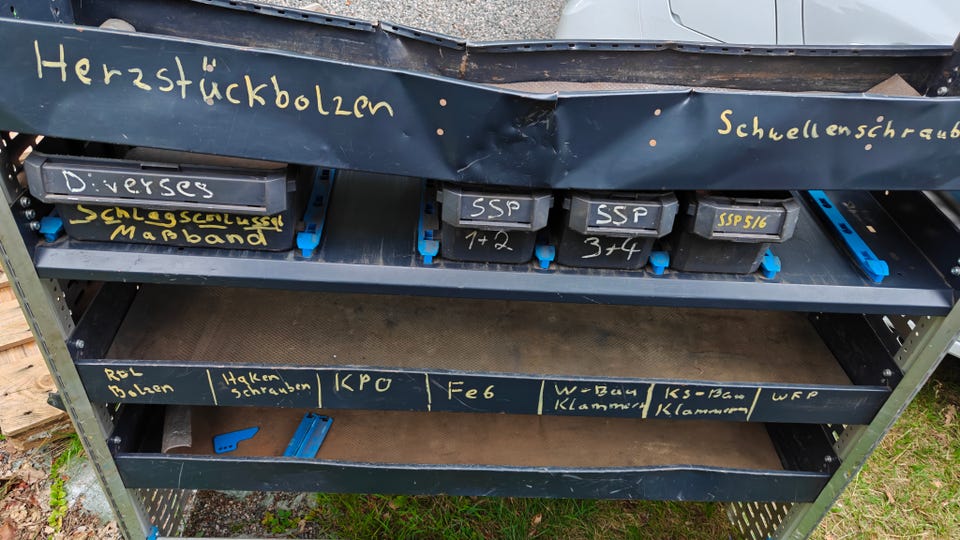 Herzstückbolzen
Schwellenschraub
Diverses
Schlagschlüssel
Maßband
SSP
1+2
SSP
3+4
SSP 5/6
Bolzen
Haken
Schrauben
KPO
Fe6
W-Bau
Klammern
KS-Bau
Klammern
WFP